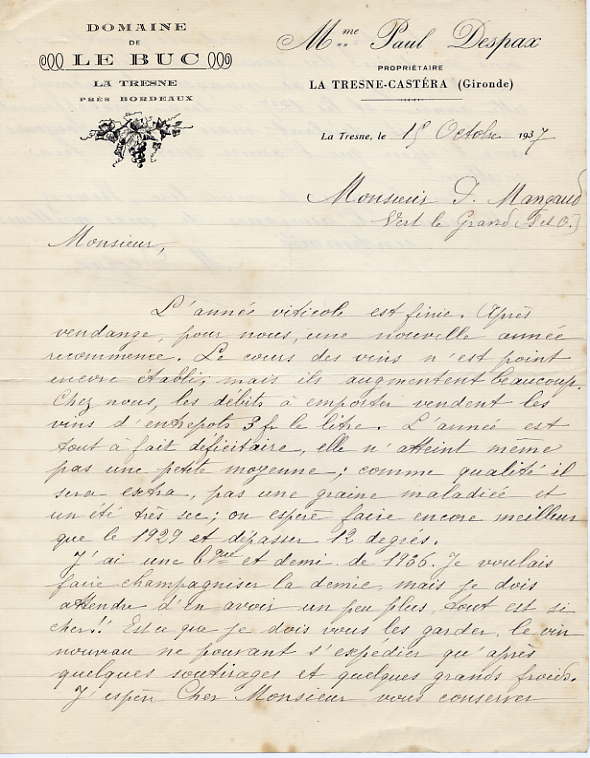 DOMAINE
DE
LE BUC
LA TRESNE
PRÈS BORDEAUX
Mme Paul Despax
PROPRIÉTAIRE
LA TRESNE-CASTÉRA (Gironde)
La Tresne, le 15 Octobre 1937
Monsieur D. Mangaud
Vert le Grand (S et O.)
Monsieur,
L'année viticole est finie. Après
vendange, pour nous, une nouvelle année
recommence. Le cours des vins n'est point
encore établi, mais ils augmentent beaucoup.
Chez nous, les débits à emporter vendent les
vins d'entrepots 3 fr le litre. L'année est
tout à fait déficitaire, elle n'atteint même
pas une petite moyenne ; comme qualité il
sera extra, pas une graine maladiée et
un été très sec ; on espère faire encore meilleur
que le 1929 et dépasser 12 degrés.
J'ai une bque et demi de 1936. Je voulais
faire champagniser la demie, mais je dois
attendre d'en avoir un peu plus, tout est si
cher!! Est ce que je dois vous les garder, le vin
nouveau ne pouvant s'expédier qu'après
quelques soutirages et quelques grands froids.
J'espère Cher Monsieur vous conserver